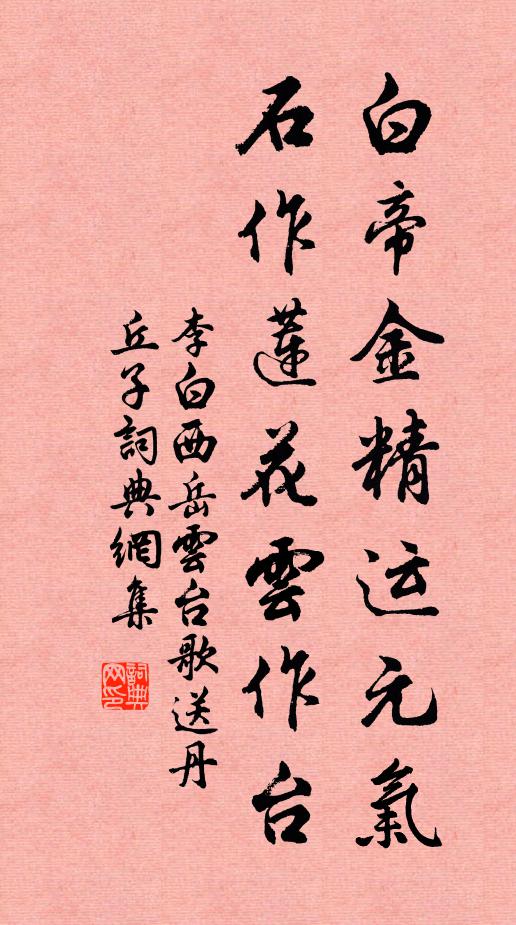 白帝金精运元氣
石作蓮花雲作台
李白西岳雲台歌送丹
丘子詞典網集
詞典网印